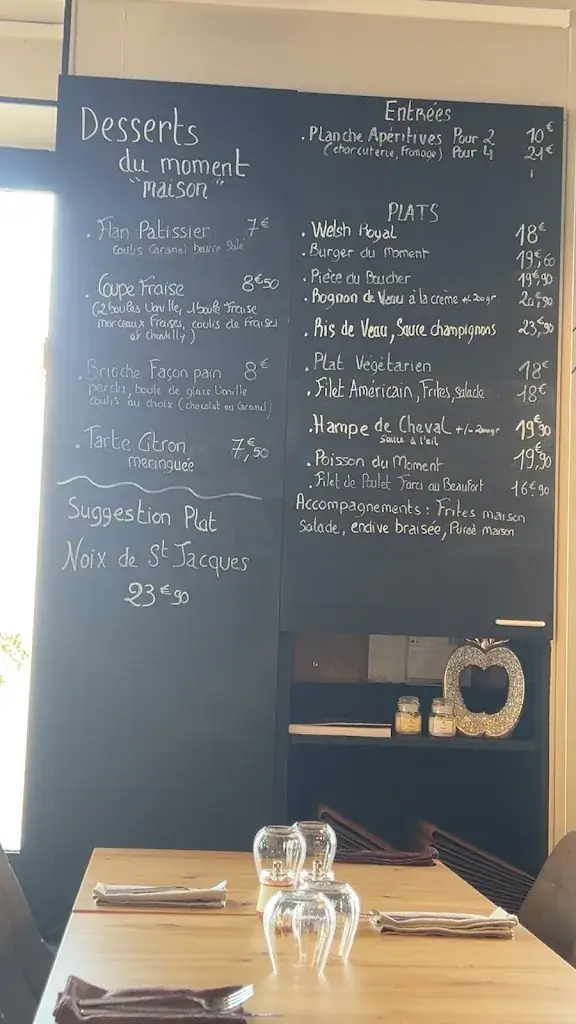 Desserts
du moment
"maison"
. Flan Patissier 7€
Coulis Caramel beurre Salé
. Coupe Fraise 8€50
(2 boules Vanille, 1 boule Fraise
morceaux fraises, coulis de fraises
et chantilly)
. Brioche Façon pain 8€
perdu, boule de glace Vanille
coulis au choix (chocolat ou Caramel)
. Tarte Citron 7,€50
meringuée
Suggestion Plat
Noix de St Jacques
23€90
Entrées
. Planche Apéritives Pour 2 10€
(charcuterie, fromage) Pour 4 21€
PLATS
. Welsh Royal 18€
. Burger du Moment 19,€60
. Pièce du Boucher 19€90
. Rognon de Veau à la crème +/- 200gr 20€90
. Ris de Veau, Sauce champignons 23,€90
. Plat Végètarien 18€
. Filet Américain, Frites, salade 18€
. Hampe de Cheval +/- 200gr 19€90
sauce à l'ail
. Poisson du Moment 19,€90
. Filet de Poulet Farci au Beaufort 16€90
Accompagnements : Frites maison
Salade, endive braisée, Pureé maison